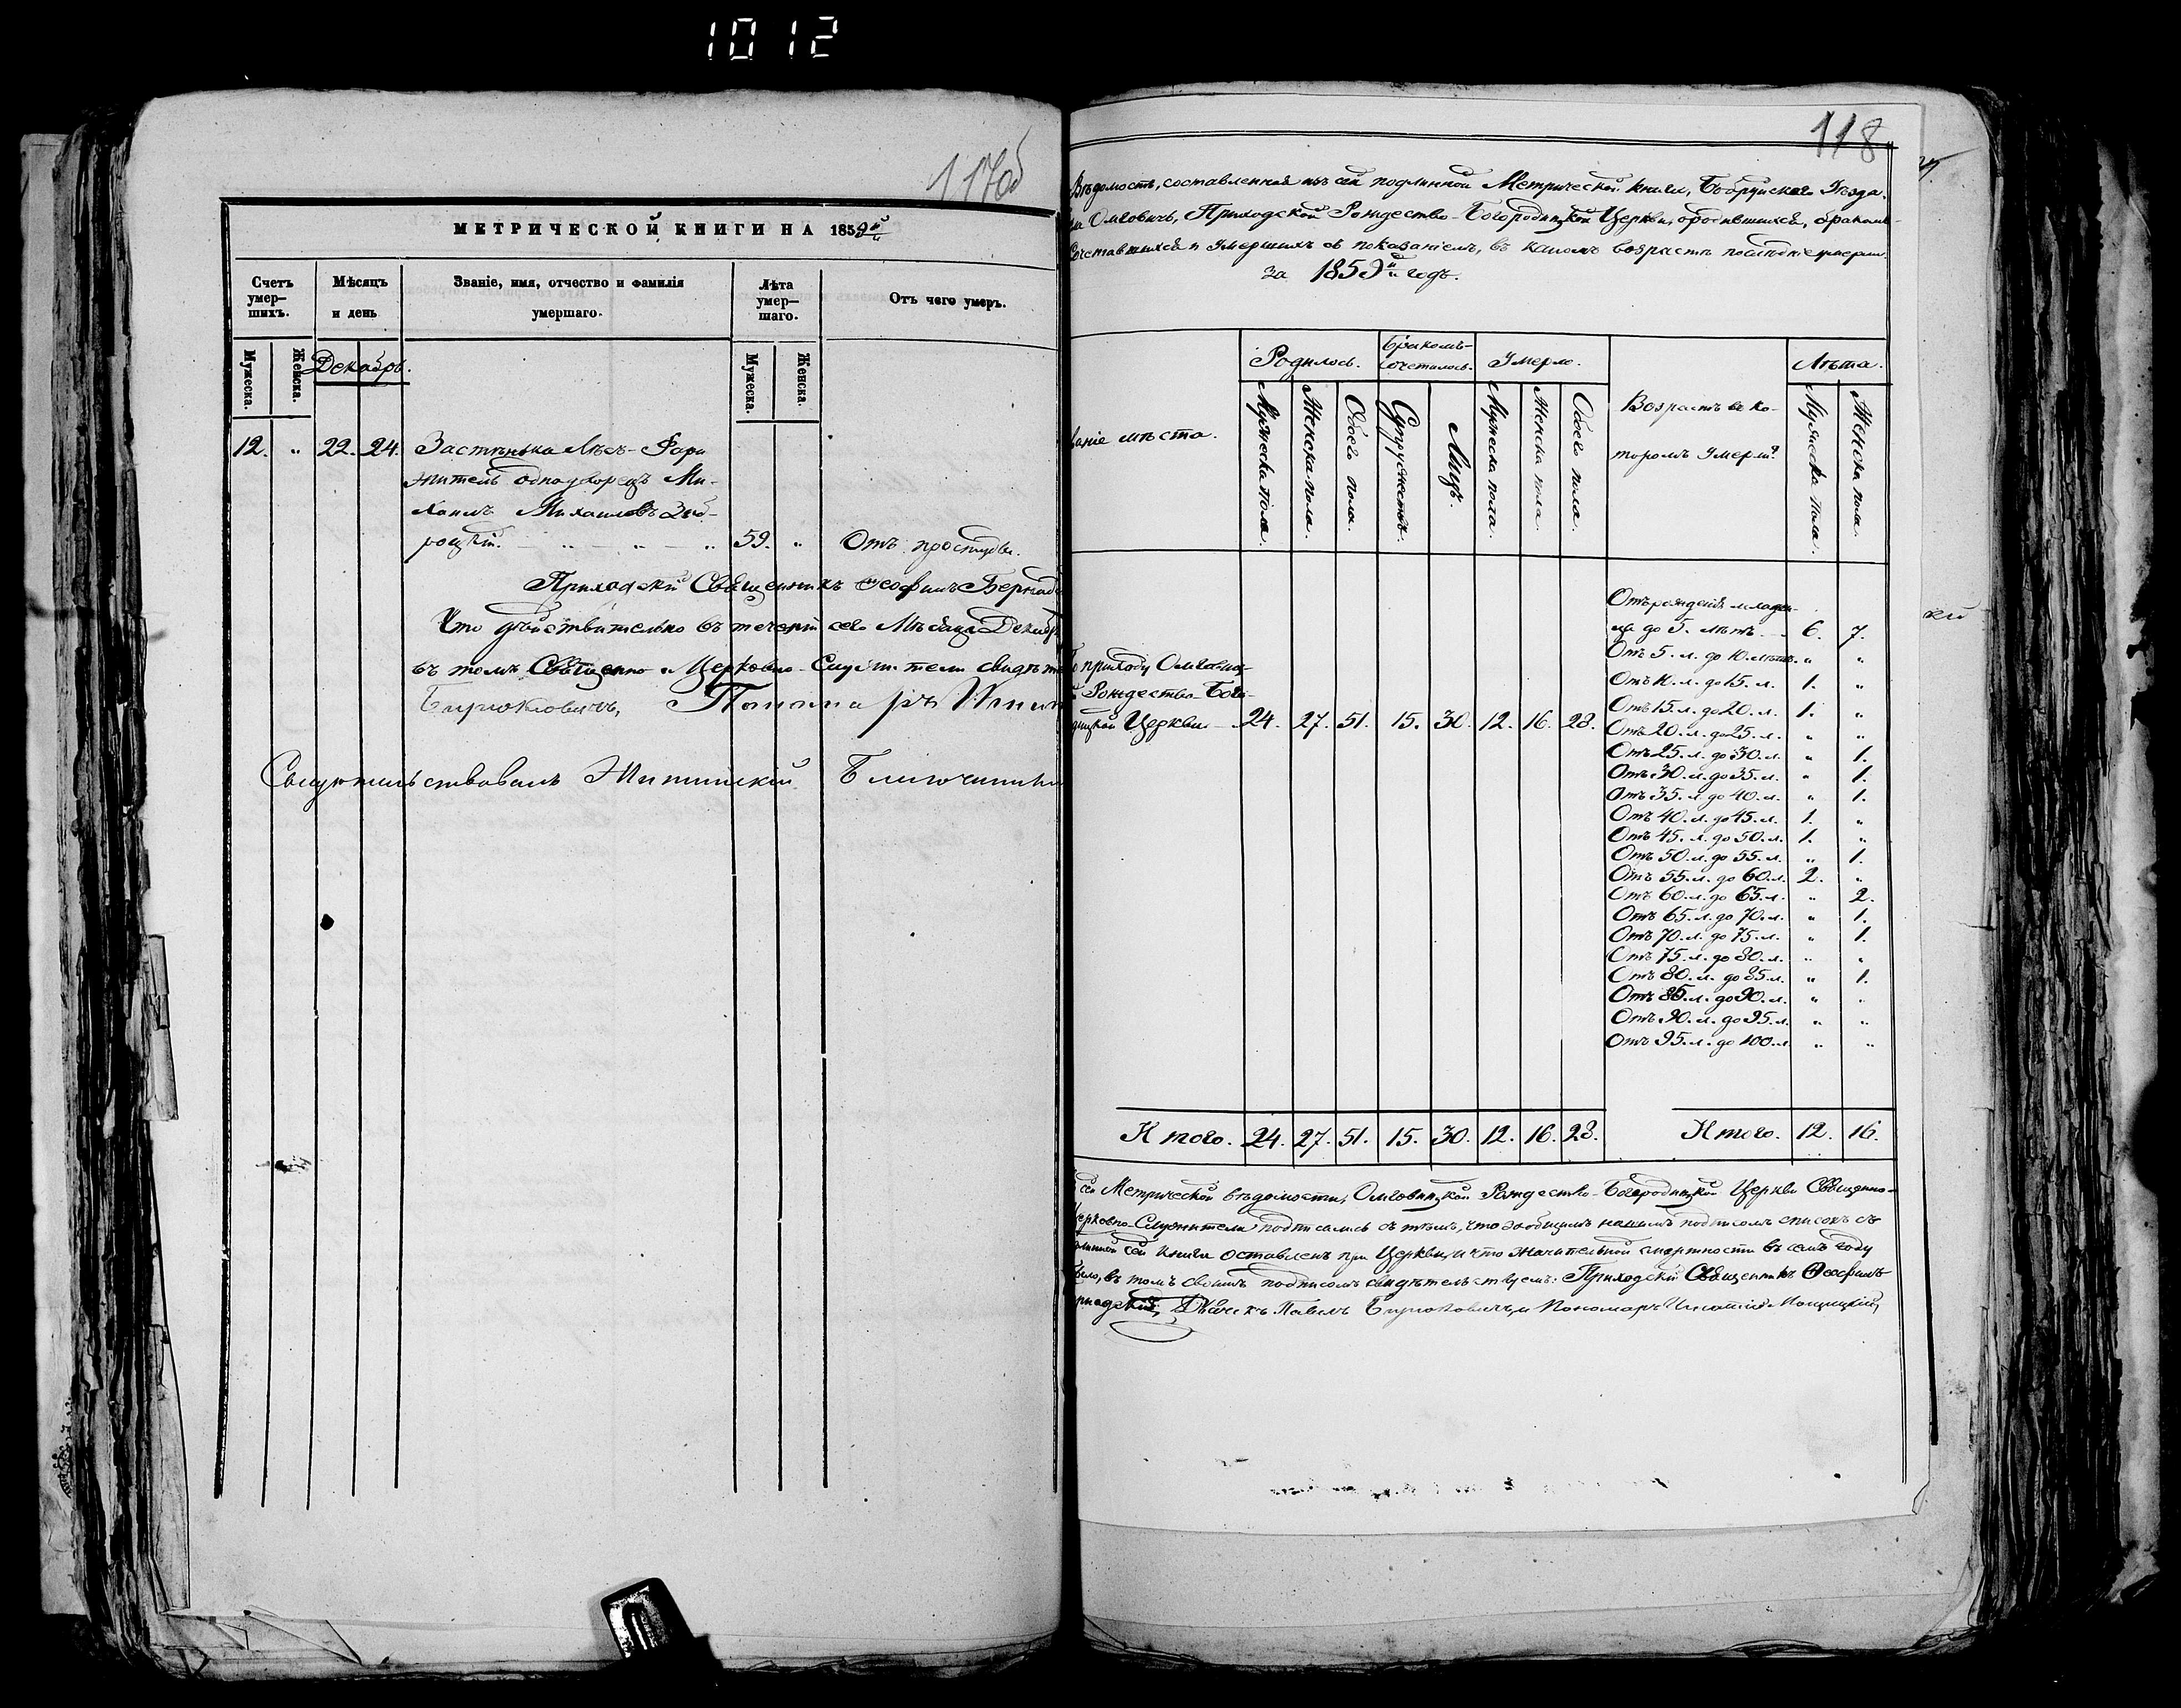 1012
117об
МЕТРИЧЕСКОЙ КНИГИ НА 1859й
Счетъ умер—шихъ.
Мѣсяцъ и день
Званіе, имя, отчество и фамилія умершаго.
Лѣта умер—шаго.
Отъ чего умеръ.
Мужеска.
Женска.
Декабрь.
Мужеска.
Женска.
12. „ 22. 24. Застѣнька Лѣсъ-
житель однодворецъ Ми-
хаилъ Михаиловъ
59. „ Отъ простуды.
Приходскій Священникъ Ѳеофилъ
Что дѣйствительно въ теченіи сего Мѣсяца
въ томъ Священно и Церковно-Служители
Бируковичъ, Пономарь
Свидѣтельствовалъ
118
Вѣдомость, составленная изъ сей подлинной Метрической книги, Бобруйскаго Уѣзда.
Омговичъ, Приходской Рождество-Богородицкой Церкви, о родившихся, бракомъ-
сочетавшихся и умершихъ съ показаніемъ, въ какомъ возрастѣ послѣдніе умерли.
за 1859й годъ.
ваніе мѣста.
Родилось.
Бракомъ-сочеталось.
Умерло.
Возрастъ въ ко-
торомъ Умерли.
Лѣта.
Мужеска пола.
Женска пола.
Обоего пола.
Супружествъ.
Лицъ.
Мужеска пола.
Женска пола.
Обоего пола.
Мужеска пола.
Женска пола.
по приходу Омговиц-
й Рождество-Бого-
дицкой Церкви 24. 27. 51. 15. 30. 12. 16. 28.
Отъ рожденія младен-
ца до 5. лѣтъ 6. 7.
Отъ 5. л. до 10. лѣтъ. „ „
Отъ 10. л. до 15. л. 1. „
Отъ 15. л. до 20. л. 1. „
Отъ 20. л. до 25. л. „ „
Отъ 25. л. до 30. л. „ 1.
Отъ 30. л. до 35. л. „ 1.
Отъ 35. л. до 40. л. „ 1.
Отъ 40. л. до 45. л. 1. „
Отъ 45. л. до 50. л. 1. „
Отъ 50. л. до 55. л. „ 1.
Отъ 55. л. до 60. л. 2. „
Отъ 60. л. до 65. л. „ 2.
Отъ 65. л. до 70. л. „ 1.
Отъ 70. л. до 75. л. „ 1.
Отъ 75. л. до 80. л. „ „
Отъ 80. л. до 85. л. „ 1.
Отъ 85. л. до 90. л. „ „
Отъ 90. л. до 95. л. „ „
Отъ 95. л. до 100. л. „ „
Итого. 24. 27. 51. 15. 30. 12. 16. 28. Итого. 12. 16.
сей Метрической вѣдомости, Омговицкой Рождество-Богородицкой Церкви Священно-
Церковно-Служители подписались съ тѣмъ, что за общимъ нашимъ подписомъ списокъ съ
сей книги оставленъ при Церкви, и что значительной смертности въ семъ году
было, въ томъ своимъ подписомъ свидѣтельствуемъ: Приходскій Священникъ Ѳеофилъ
Дьячекъ Павелъ Бируковичъ, и Пономарь Игнатій